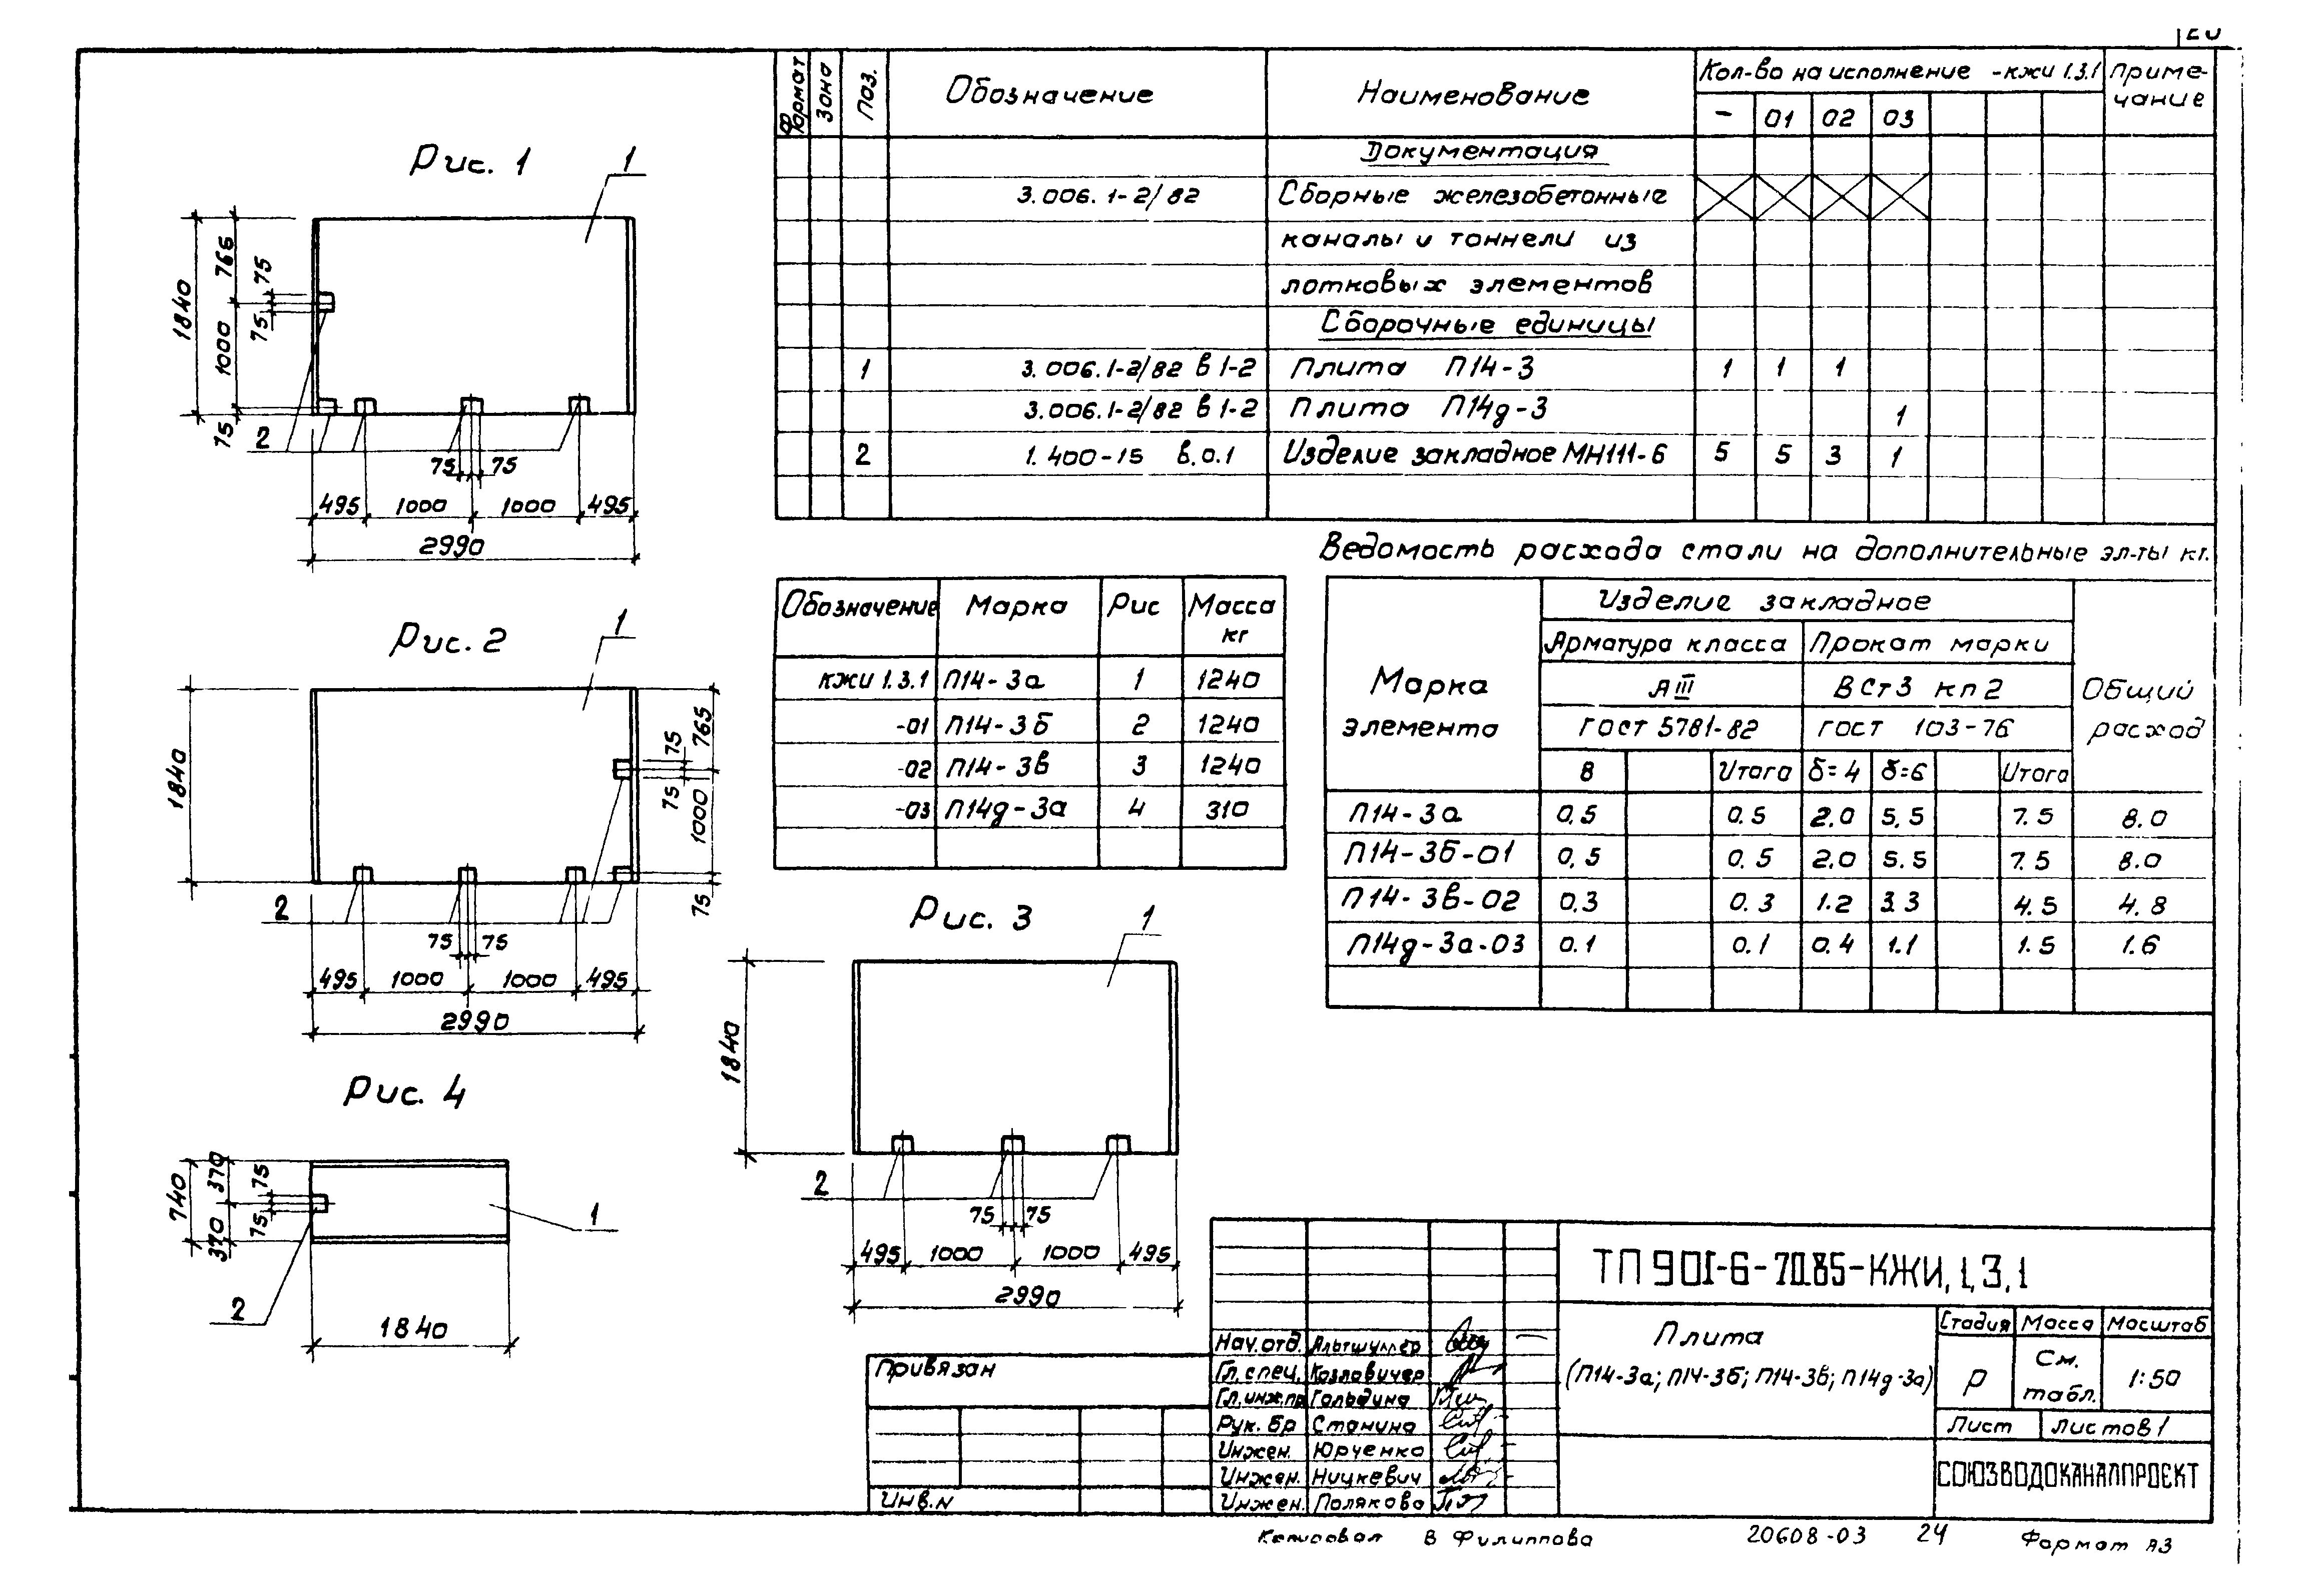 Рис. 1
1
1840
766
75
75
1000
75
2
75 75
495 1000 1000 495
2990
Рис. 2
1
1840
75
765
75
1000
75
2
75 75
495 1000 1000 495
2990
Рис. 4
740
370
75
75
370
1
2
1840
Рис. 3
1
1840
2
75 75
495 1000 1000 495
2990
Формат Зона Поз. Обозначение Наименование Кол-во на исполнение -кжи 1.3.1 Приме-
чание
- 01 02 03
Документация
3.006.1-2/82 Сборные железобетонные
каналы и тоннели из
лотковых элементов
Сборочные единицы
1 3.006.1-2/82 в 1-2 Плита П14-3 1 1 1
3.006.1-2/82 в 1-2 Плита П14д-3 1
2 1.400-15 в.0.1 Изделие закладное МН111-6 5 5 3 1
Обозначение Марка Рис Масса
кг
кжи 1.3.1 П14-3а 1 1240
-01 П14-3б 2 1240
-02 П14-3в 3 1240
-03 П14д-3а 4 310
Ведомость расхода стали на дополнительные эл-ты кг.
Марка
элемента
Изделие закладное
Арматура класса Прокат марки
АIII ВСт3 кп2
ГОСТ 5781-82 ГОСТ 103-76
Общий
расход
8 Итого δ=4 δ=6 Итого
П14-3а 0,5 0.5 2.0 5.5 7.5 8.0
П14-3б-01 0,5 0.5 2.0 5.5 7.5 8.0
П14-3в-02 0.3 0.3 1.2 3.3 4.5 4.8
П14д-3а-03 0.1 0.1 0.4 1.1 1.5 1.6
Привязан
Инв.N
ТП 901-6-70.85-КЖИ.1.3.1
Нач.отд. Альтшуллер
Гл.спец. Козловичер
Гл.инж.пр Гольдина
Рук.бр Станина
Инжен. Юрченко
Инжен. Ницкевич
Инжен. Полякова
Плита
(П14-3а; П14-3б; П14-3в; П14д-3а)
Стадия Масса Масштаб
Р См.
табл. 1:50
Лист Листов 1
СОЮЗВОДОКАНАЛПРОЕКТ
Копировал В Филиппова 20608-03 24 Формат А3